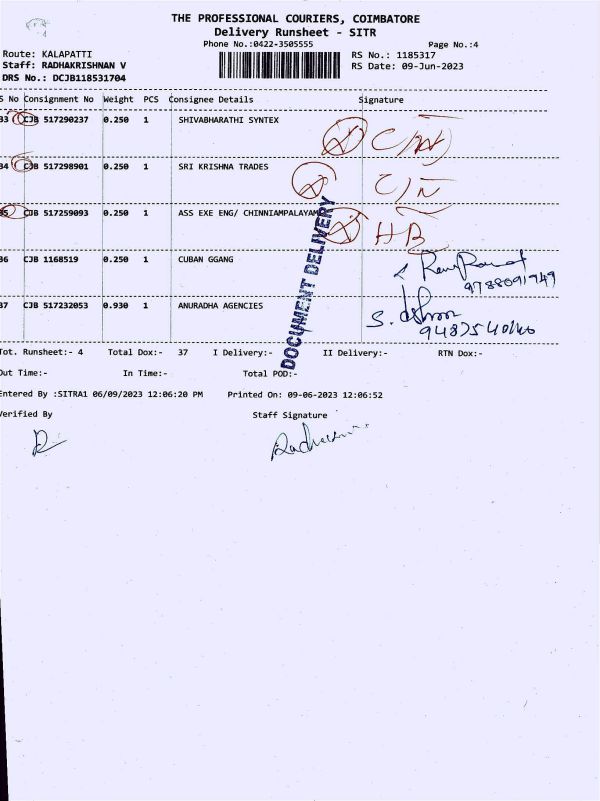 THE PROFESSIONAL COURIERS, COIMBATORE
Delivery Runsheet - SITR
Phone No.:0422-3505555 Page No.:4
Route: KALAPATTI RS No.: 1185317
Staff: RADHAKRISHNAN V RS Date: 09-Jun-2023
DRS No.: DCJB118531704
S No Consignment No Weight PCS Consignee Details Signature
33 CJB 517290237 0.250 1 SHIVABHARATHI SYNTEX
34 CJB 517298901 0.250 1 SRI KRISHNA TRADES C/N
35 CJB 517259093 0.250 1 ASS EXE ENG/ CHINNIAMPALAYAM HB
DOCUMENT DELIVERY
36 CJB 1168519 0.250 1 CUBAN GGANG
9788091949
37 CJB 517232053 0.930 1 ANURADHA AGENCIES S.
Tot. Runsheet:- 4 Total Dox:- 37 I Delivery:- II Delivery:- RTN Dox:-
Out Time:- In Time:- Total POD:-
Entered By :SITRA1 06/09/2023 12:06:20 PM Printed On: 09-06-2023 12:06:52
Verified By Staff Signature